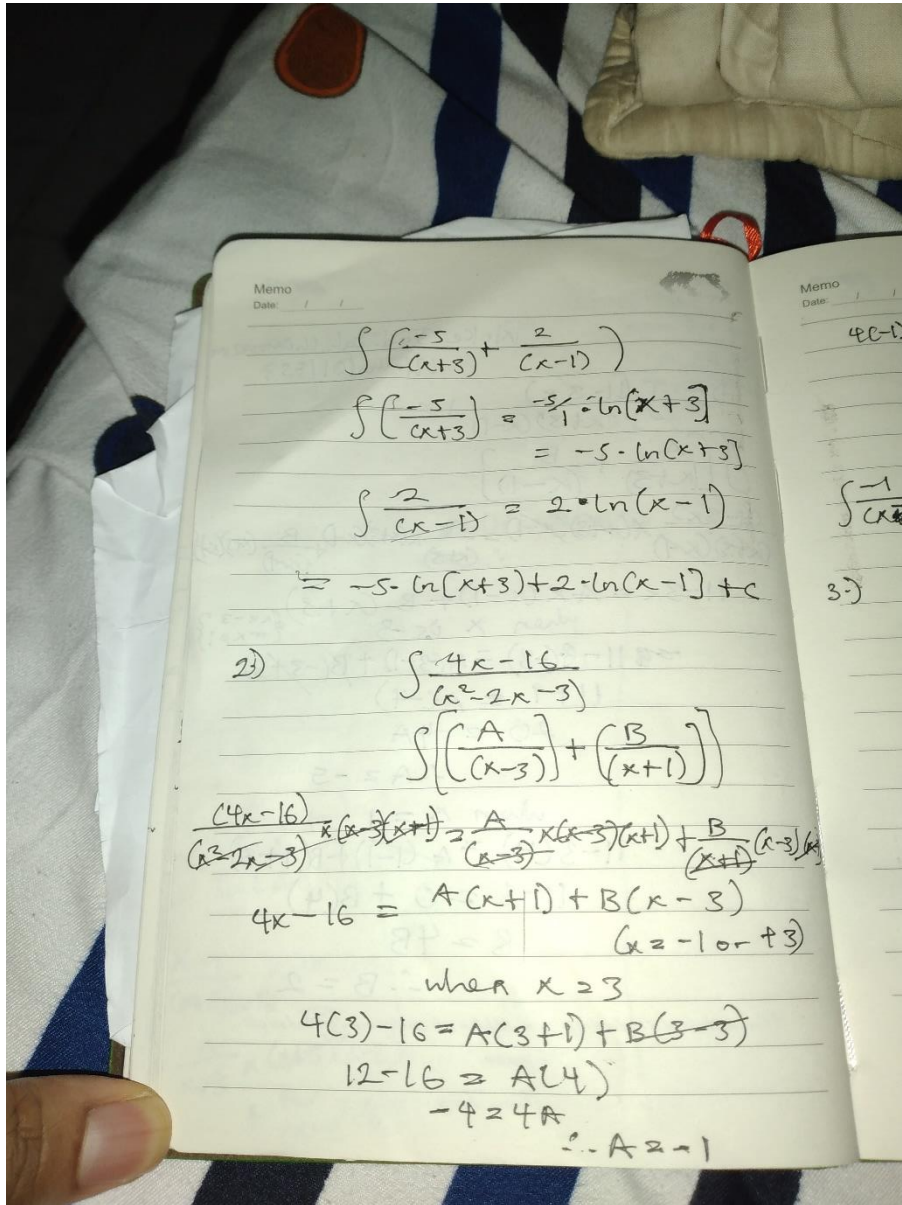 Memo
Date: / /
∫ (-5/(x+3) + 2/(x-1))
∫ (-5/(x+3)) = -5/1 · ln[x+3]
= -5 · ln(x+3]
∫ 2/(x-1) = 2 · ln(x-1)
= -5 · ln[x+3) + 2 · ln(x-1] + c
2·) ∫ 4x-16/(x²-2x-3)
∫ [(A/(x-3)) + (B/(x+1))]
(4x-16)/(x²-2x-3) × (x-3)(x+1) = A/(x-3) × (x-3)(x+1) + B/(x+1) (x-3)
4x-16 = A(x+1) + B(x-3)
(x = -1 or +3)
when x = 3
4(3)-16 = A(3+1) + B(3-3)
12-16 = A(4)
-4 = 4A
∴ A = -1
Memo
Date: / /
4(-1)
∫ -1/(x
3·)